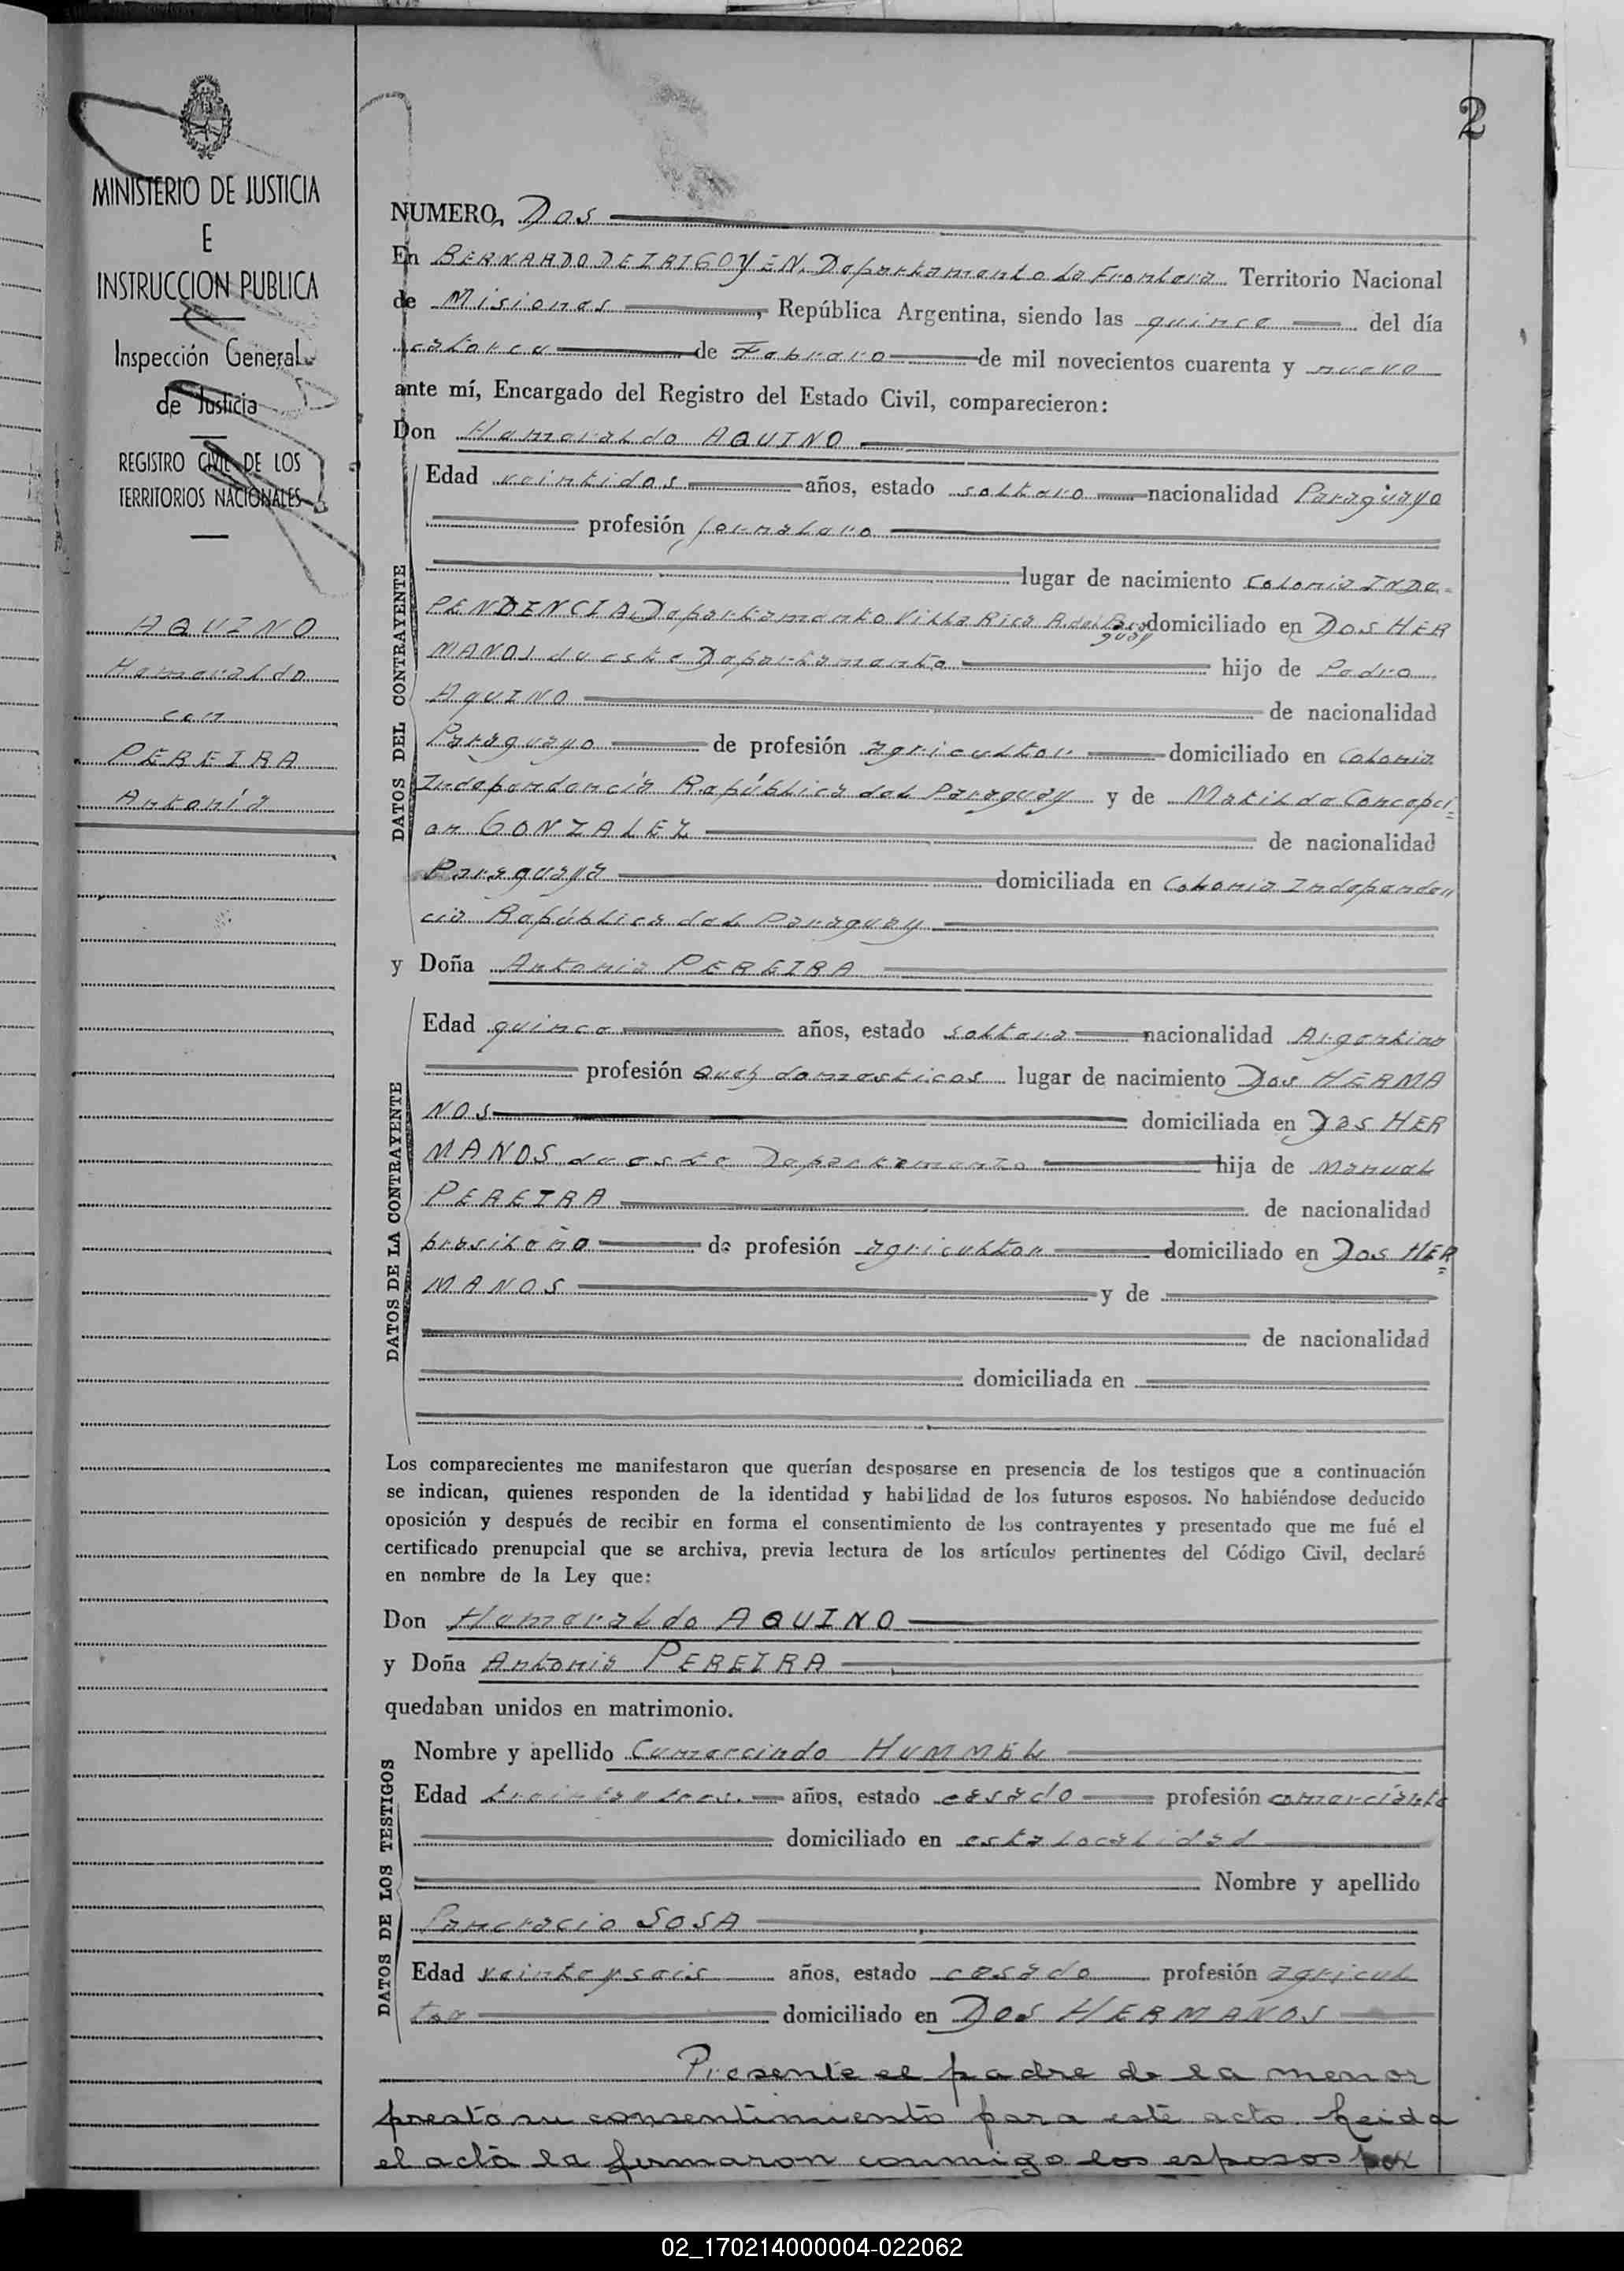 2
MINISTERIO DE JUSTICIA
E
INSTRUCCION PUBLICA
Inspección General
de Justicia
REGISTRO CIVIL DE LOS
TERRITORIOS NACIONALES
AQUINO
Hameraldo
con
PEREIRA
Antonia
NUMERO Dos
En BERNARDO DE IRIGOYEN. Departamento La Frontera Territorio Nacional
de Misiones, República Argentina, siendo las quince del día
catorce de Febrero de mil novecientos cuarenta y nueve
ante mí, Encargado del Registro del Estado Civil, comparecieron:
Don Hameraldo AQUINO
DATOS DEL CONTRAYENTE
Edad veintidos años, estado soltero nacionalidad Paraguayo
profesión jornalero
lugar de nacimiento Colonia INDE-
PENDENCIA Departamento Villa Rica R. del Paraguay domiciliado en DOS HER
MANOS de este Departamento hijo de Pedro
AQUINO de nacionalidad
Paraguayo de profesión agricultor domiciliado en Colonia
Independencia República del Paraguay y de Matilde Concepci=
on GONZALEZ de nacionalidad
Paraguaya domiciliada en Colonia Independen
cia República del Paraguay
y Doña Antonia PEREIRA
DATOS DE LA CONTRAYENTE
Edad quince años, estado soltera nacionalidad Argentina
profesión queh domesticos lugar de nacimiento Dos HERMA
NOS domiciliada en Dos HER
MANOS de este Departamento hija de Manuel
PEREIRA de nacionalidad
brasileño de profesión agricultor domiciliado en Dos HER=
MANOS y de
de nacionalidad
domiciliada en
Los comparecientes me manifestaron que querían desposarse en presencia de los testigos que a continuación
se indican, quienes responden de la identidad y habilidad de los futuros esposos. No habiéndose deducido
oposición y después de recibir en forma el consentimiento de los contrayentes y presentado que me fué el
certificado prenupcial que se archiva, previa lectura de los artículos pertinentes del Código Civil, declaré
en nombre de la Ley que:
Don Hameraldo AQUINO
y Doña Antonia PEREIRA
quedaban unidos en matrimonio.
DATOS DE LOS TESTIGOS
Nombre y apellido Cumercindo HUMMEL
Edad treintaytres. años, estado casado profesión comerciante
domiciliado en esta localidad
Nombre y apellido
Pancracio SOSA
Edad veinteyseis años, estado casado profesión agricul
tor domiciliado en DOS HERMANOS
Presente el padre de la menor
prestó su consentimiento para este acto. Leida
el acta la firmaron conmigo los esposos por
02_170214000004-022062